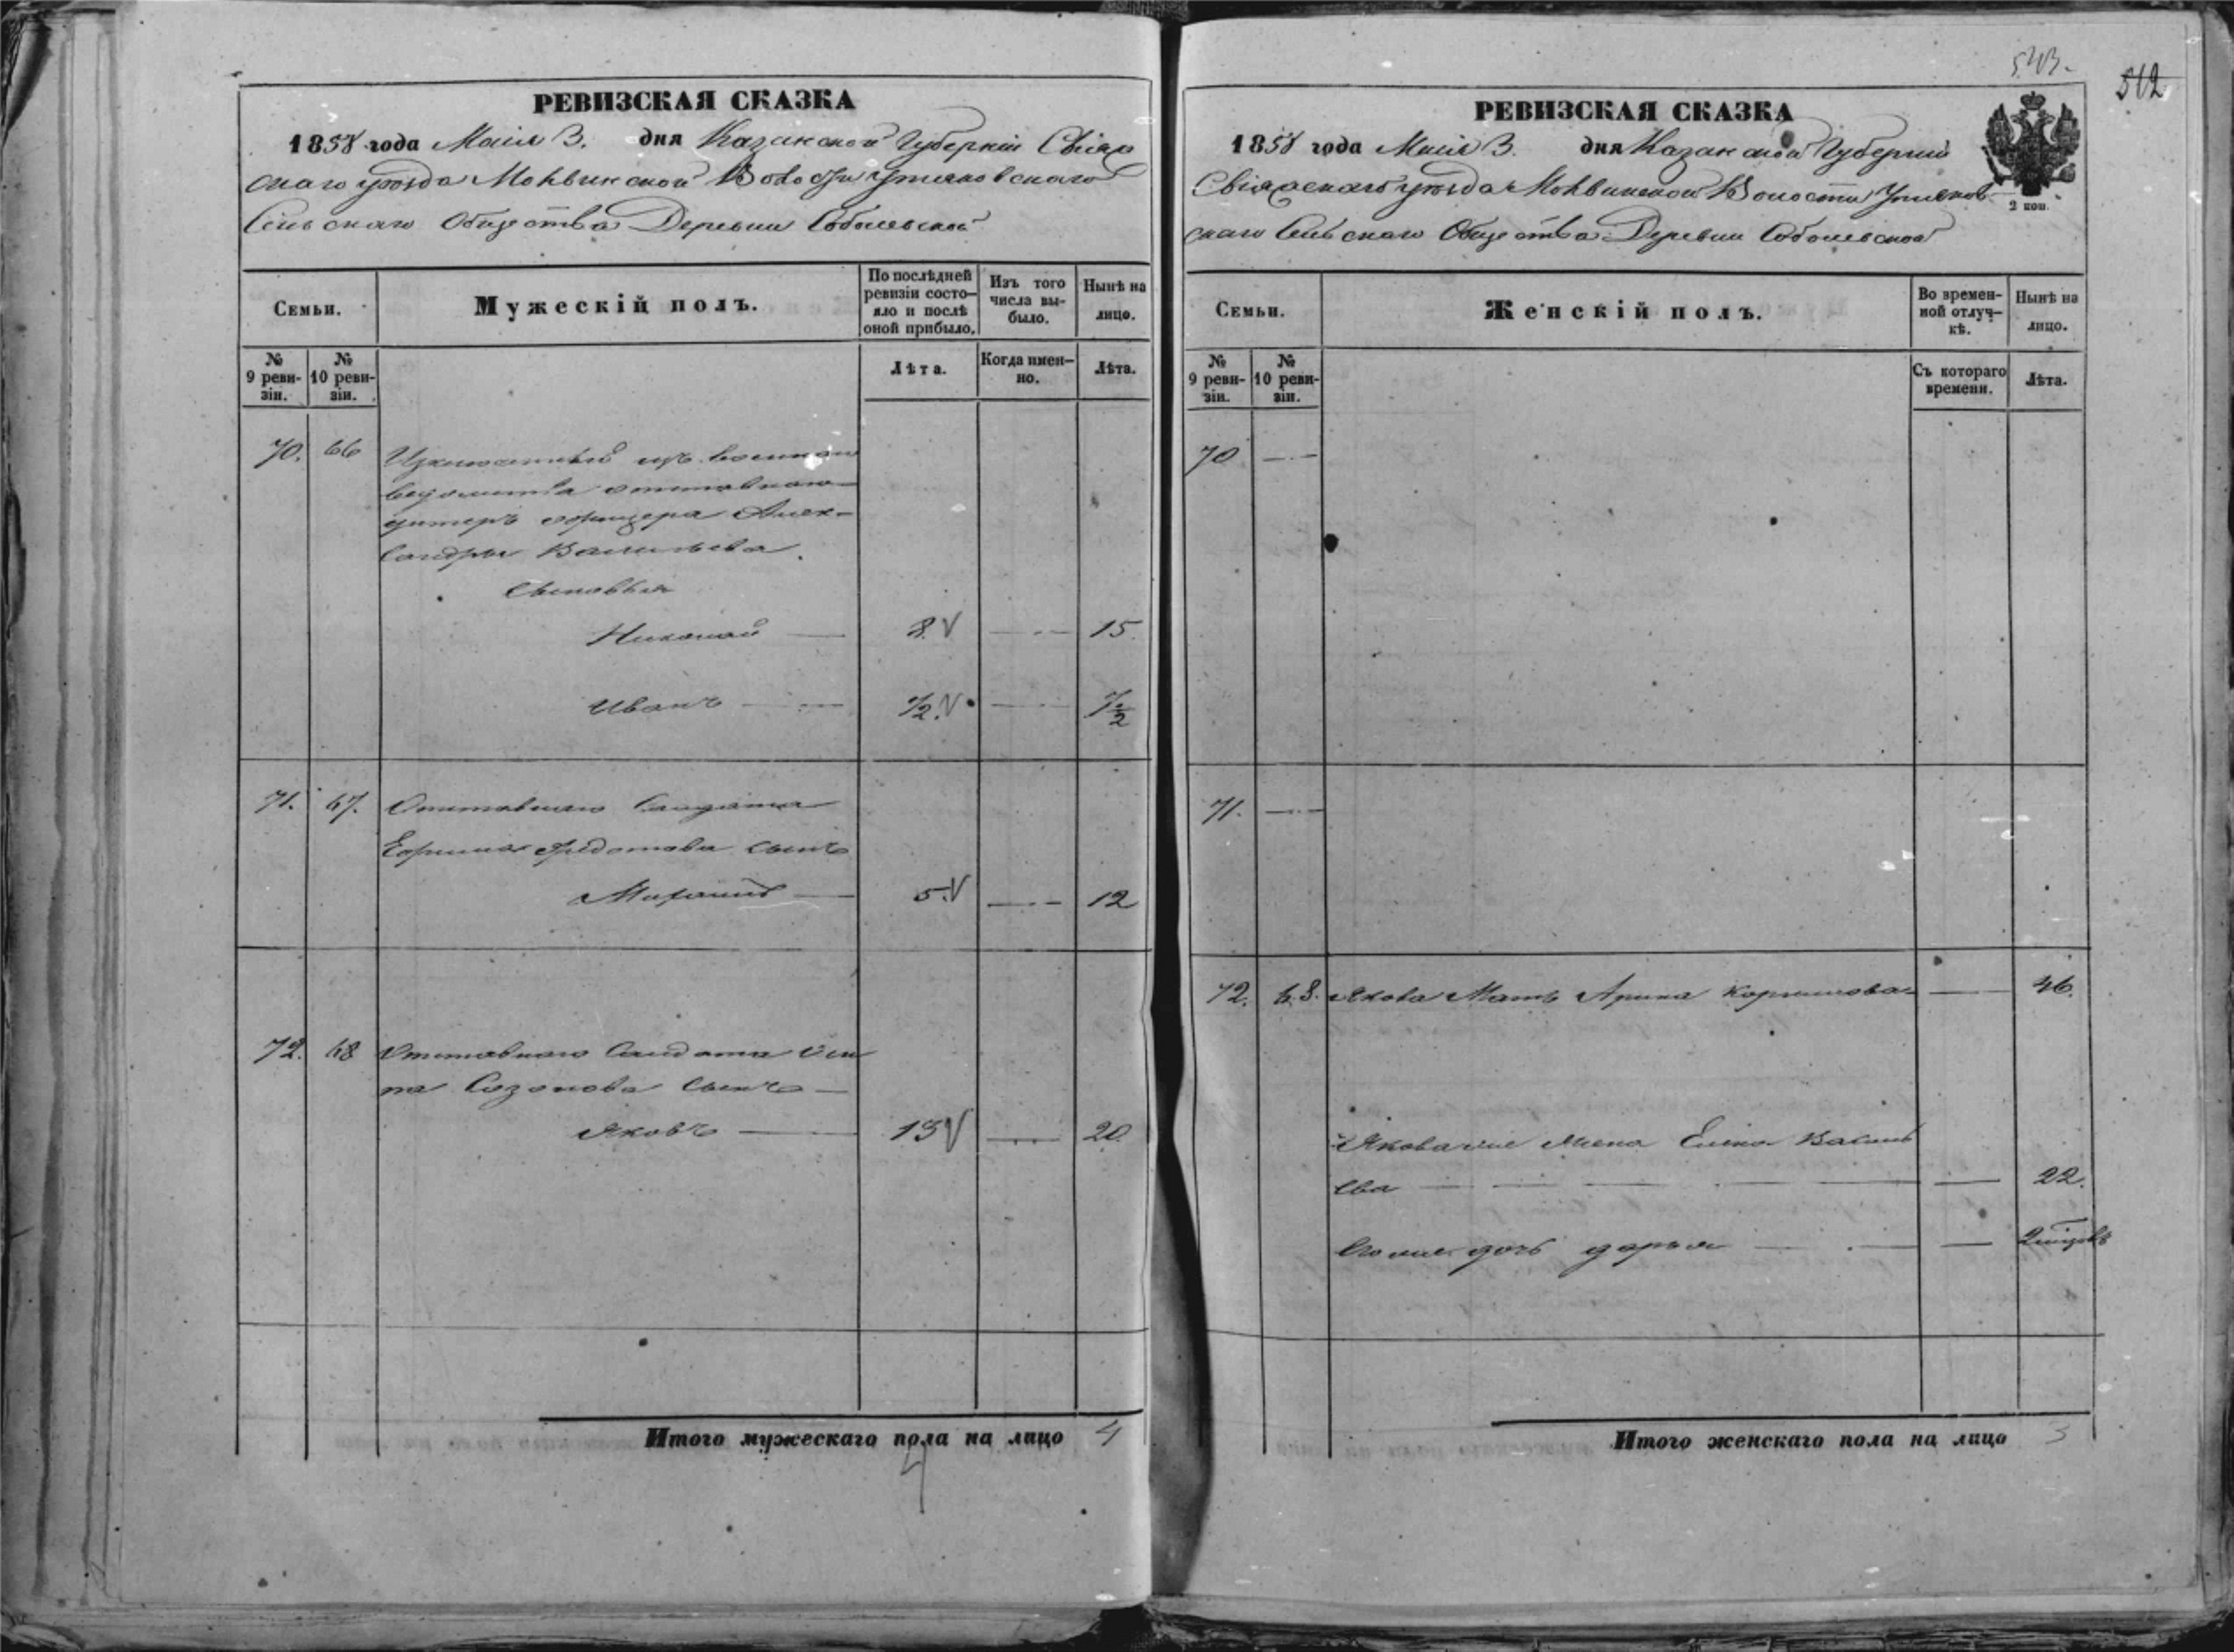 РЕВИЗСКАЯ СКАЗКА
1858 года Маія 3. дня Казанской Губерніи Свіяж
скаго уѣзда Моквинской Волости Утяковскаго
Сельскаго Общества Деревни Соболевской
Семьи.
Мужескій полъ.
По послѣдней ревизіи состо-
яло и послѣ оной прибыло.
Изъ того числа вы-
было.
Нынѣ на лицо.
№ 9 реви-
зіи.
№ 10 реви-
зіи.
Лѣта.
Когда имен-
но.
Лѣта.
70. 66 Изключенный изъ военнаго
ведомства отставнаго
унтеръ офицера Алек-
сандры Васильева.
Сыновья
Николай — 8. V — 15.
Иванъ — 1/2. V — 7 1/2
71. 67. Отставнаго Солдата
Ефима Федотова сынъ
Михаилъ — 5. V — 12
72. 68 Отставнаго Солдата Оси
па Созонова сынъ —
Яковъ — 13 V — 20.
Итого мужескаго пола на лицо 4
4
543.
512
РЕВИЗСКАЯ СКАЗКА
1858 года Маія 3. дня Казанской Губерніи
Свіяжскаго уѣзда Моквинской Волости Утяков-
скаго Сельскаго Общества Деревни Соболевской
2 коп.
Семьи.
Женскій полъ.
Во времен-
ной отлуч-
кѣ.
Нынѣ на лицо.
№ 9 реви-
зіи.
№ 10 реви-
зіи.
Съ котораго времени.
Лѣта.
70 —
71. —
72. 68. Якова Мать Арина Корнилова — 46.
Якова же жена Елена Василь
ева — 22.
Его же дочь дарья —
Итого женскаго пола на лицо 3